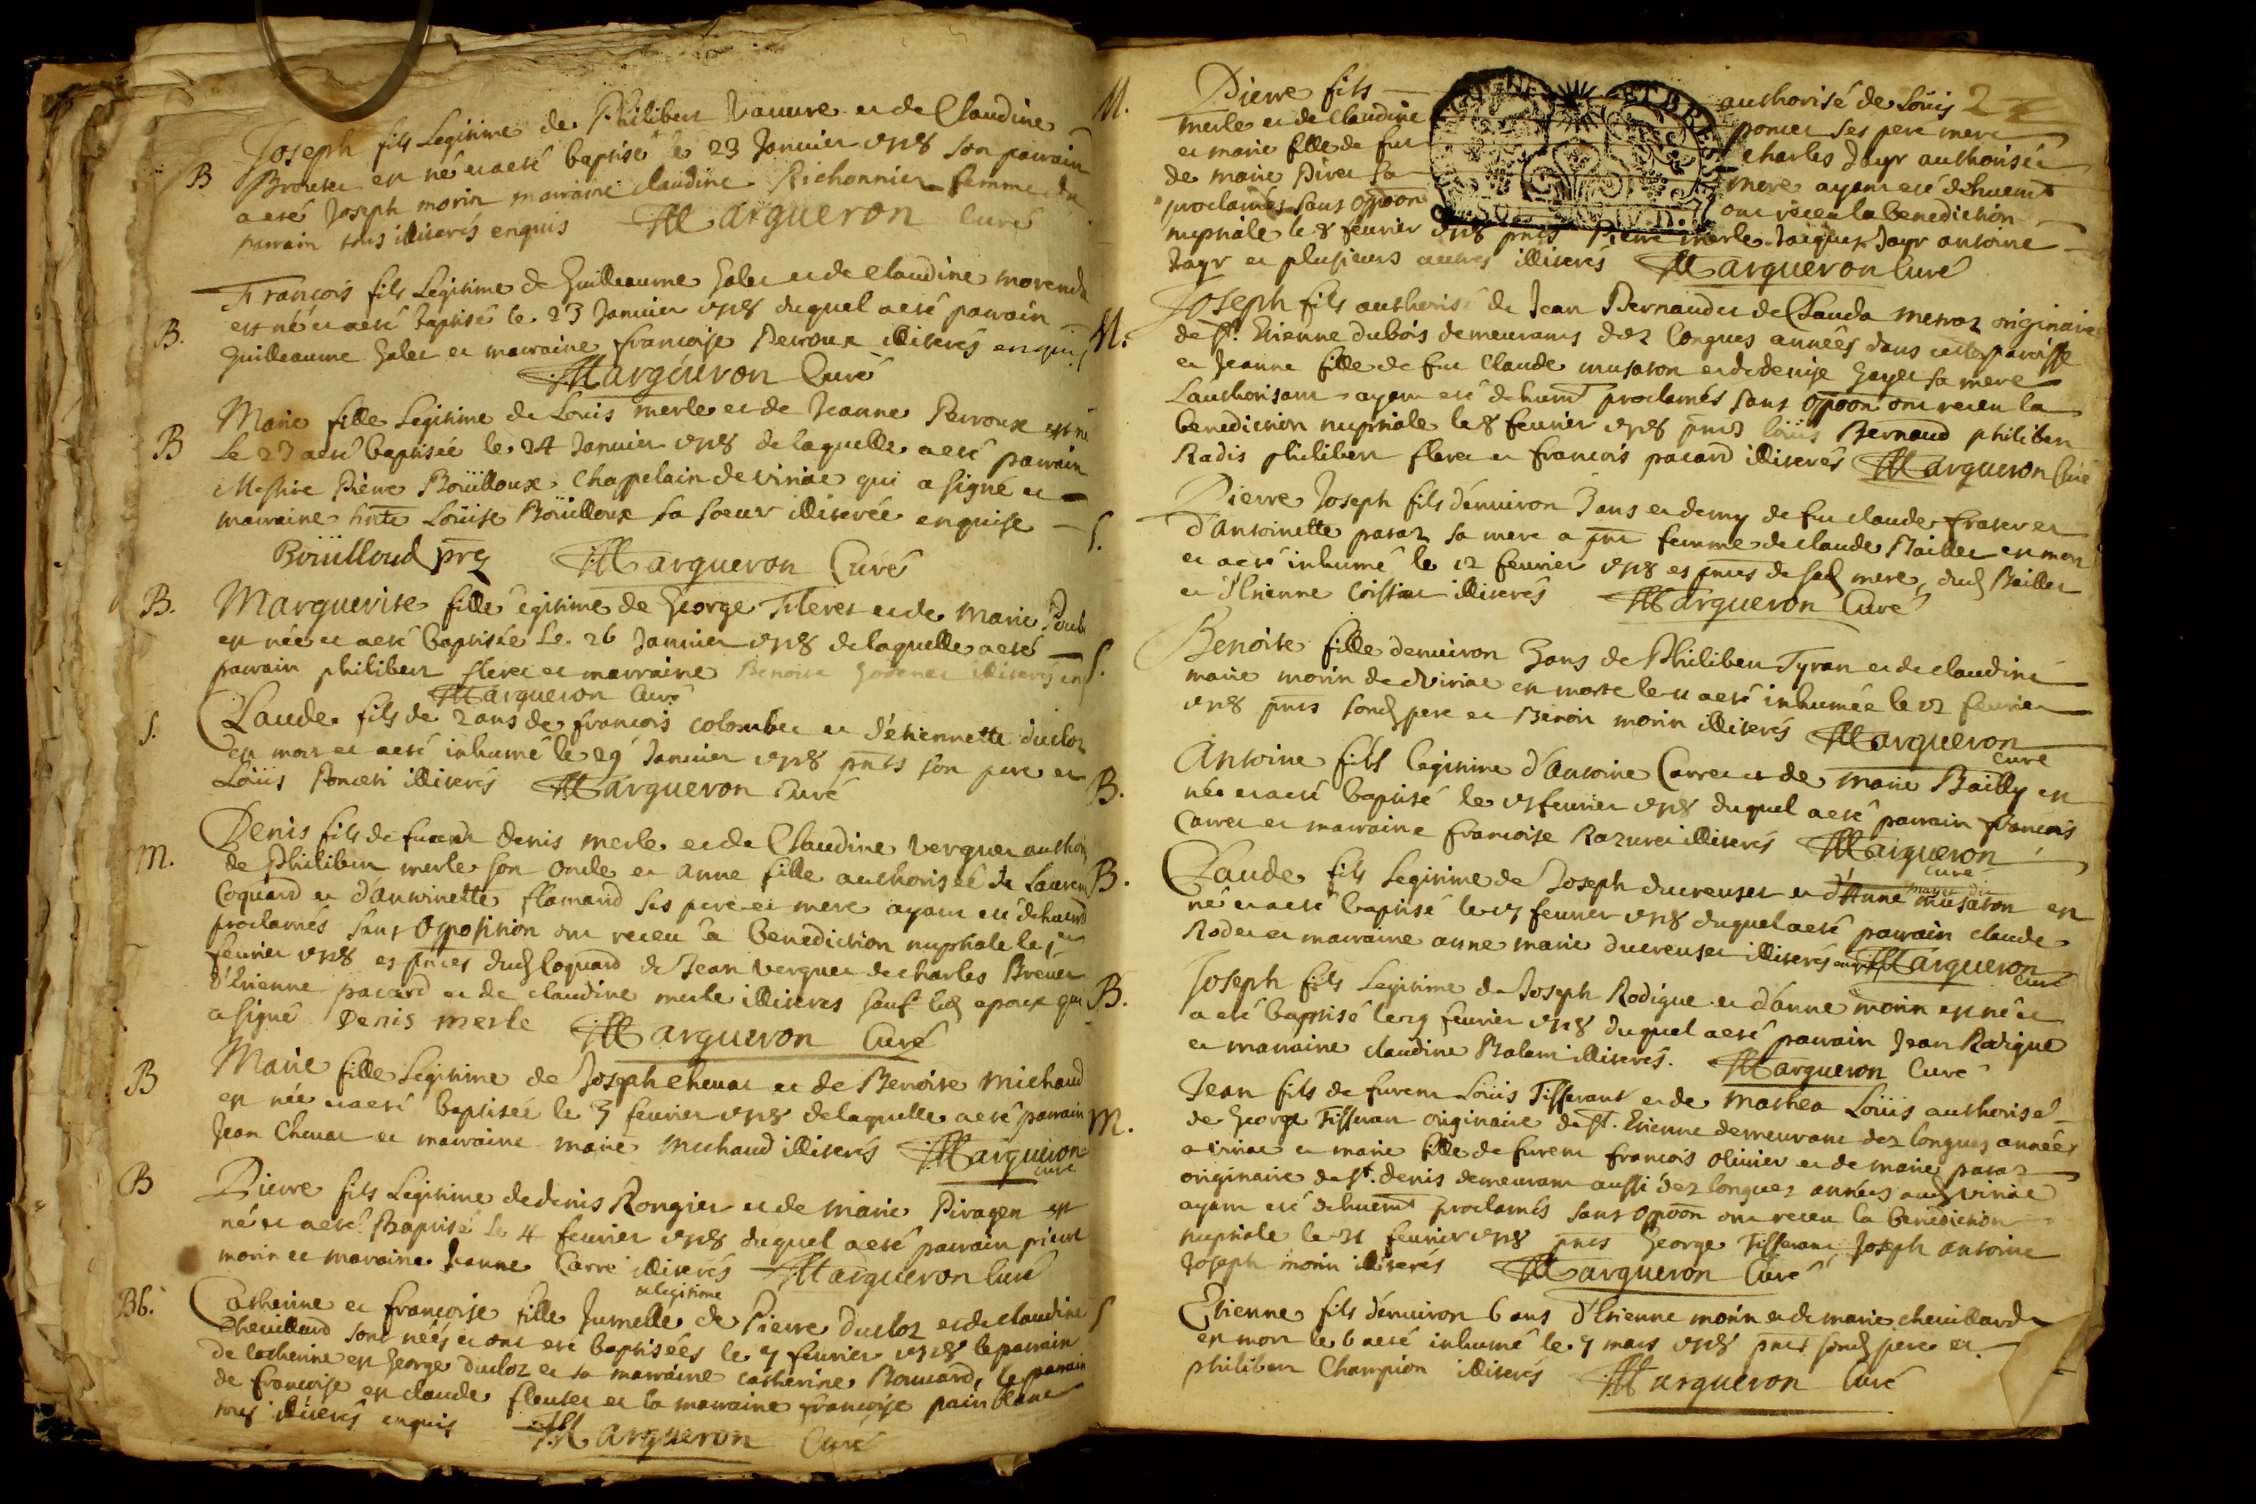 B
Joseph fils Legitime de Philibert Vavvre et de Claudine
Brouter est né et a esté baptisé le 23 Janvier 1718 son parrain
a esté Joseph morin marraine claudine Richonnier femme du
parrain tous illiterés enquis Margueron Curé
B.
François fils Legitime de Guilleaume Galet et de Claudine morand
est né et a esté baptisé le 23 Janvier 1718 duquel a esté parrain
Guilleaume Galet et marraine francoise Perroux illiterés enquis
Margueron Curé
B
Marie fille Legitime de Louis merle et de Jeanne Perroux est né
Le 23 a esté baptisée le 24 Janvier 1718 de laquelle a esté parrain
Messire Pierre Boüilloux Chappelain de viriac qui a signé et
marraine Louise Boüilloux sa soeur illiterée enquise
Boüilloud Margueron Curé
B.
Marguerite fille legitime de George fleret et de Marie
est née et a esté baptisée Le 26 Janvier 1718 de laquelle a esté
parrain philibert fleret et marraine Benoite Godenet illiterés
Margueron Curé
S.
Claude fils de 2 ans de francois colomber et d'etiennette duclot
est mort et a esté inhumé le 29 Janvier 1718 pnts son pere et
Loüis Poncet illiterés Margueron Curé
M.
Denis fils de denis merle et de Claudine verguet author
de Philibert merle son oncle et anne fille authorisée de Laurent
Coquard et d'antoinette flamand ses pere et mere ayant eté dehuemt
proclamés sans opposition ont receu la benediction nuptiale le 1er
fevrier 1718 es pnces dud Coquard de Jean verguet de charles Brevet
d'Etienne pacard et de claudine merle illiteres sauf led epoux qui
a signé Denis merle Margueron Curé
B
Marie fille Legitime de Joseph chevat et de Benoite michaud
est née et a esté baptisée le 3 fevrier 1718 de laquelle a esté parrain
Jean Chevat et marraine marie michaud illiterés Margueron
curé
B
Pierre fils Legitime de denis Rongier et de marie Piragen est
né et a esté Baptisé le 4 fevrier 1718 duquel a esté parrain pierre
morin et maraine Jeanne Carre illiterés Margueron Curé
Bb.
et legitime
Catherine et francoise fille Jumelle de Pierre duclot et de claudine
Chevillard sont neés et ont eté baptisées le 7 fevrier 1718 le parrain
de catherine est George duclot et sa marraine catherine Bouvard, le parrain
de francoise est claude fleuter et la marraine francoise pain blanc
tous illiterés enquis Margueron Curé
M.
Pierre fils authorisé de Loüis 2
merle et de claudine poncet ses pere mere
et marie fille de feu Charles Jayr authorisée
de marie Piret sa mere ayant eté dehuemt
proclamés sans oppoon ont receu la benediction
nuptiale le 8 fevrier 1718 pnts Pierre merle Jacques Jayr antoine
Jayr et plusieurs autres illiterés Margueron Curé
M.
Joseph fils authorisé de Jean Bernaud et de Clauda metraz originaire
de St. Etienne dubois demeurants dez longues années dans cette paroisse
et Jeanne fille de feu Claude musaton et de denise Gayet sa mere
L'authorisant ayant eté dehuemt proclamés sans oppoon ont receu la
benediction nuptiale le 8 fevrier 1718 pnts loüis Bernaud philibert
Radis philibert fleret et francois pacard illiterés Margueron Curé
S.
Pierre Joseph fils d'environ 3 ans et demy de feu claude frater et
d'antoinette paraz sa mere a pnt femme de claude Baillet est mort
et a eté inhumé le 12 fevrier 1718 es pnces de sad mere, dud Baillet
et d'Etienne Coissiat illiterés Margueron Curé
S.
Benoite fille d'environ 3 ans de Philibert Tyran et de claudine
marie morin de viriac est morte le 11 a eté inhumée le 12 fevrier
1718 pnts sond pere et Benoit morin illiterés Margueron
Curé
B.
Antoine fils legitime d'Antoine Carret et de marie Bailly est
née et a eté baptisé le 17 fevrier 1718 duquel a eté parrain francois
Carret et marraine francoise Razuret illiterés Margueron
Curé
B.
Claude fils Legitime de Joseph ducreuset et d'anne marie du musaton est
né et a eté baptisé le 17 fevrier 1718 duquel a eté parrain claude
Rodet et marraine anne marie ducreuset illiterés enquis Margueron
Curé
B.
Joseph fils Legitime de Joseph Rodigue et d'anne morin est né et
a eté baptisé le 19 fevrier 1718 duquel a eté parrain Jean Rodigue
et marraine claudine Balam illiterés. Margueron Curé
M.
Jean fils de furent Loüis Tisserant et de mathea Loüis authorisé
de George Tisseran originaire de St. Etienne demeurant dez longues années
a viriac et marie fille de furent francois olivier et de marie paraz
originaire de St. denis demeurant aussi dez longues années aud viriac
ayant eté dehuemt proclamés sans oppoon ont receu la benediction
nuptiale le 21 fevrier 1718 pnts George Tisserant Joseph antoine
Joseph morin illiterés Margueron Curé
S
Etienne fils d'environ 6 ans d'Etienne morin et de marie chevillard
est mort le 6 a eté inhumé le 7 mars 1718 pnts sond pere et
philibert Champion illiterés Margueron Curé